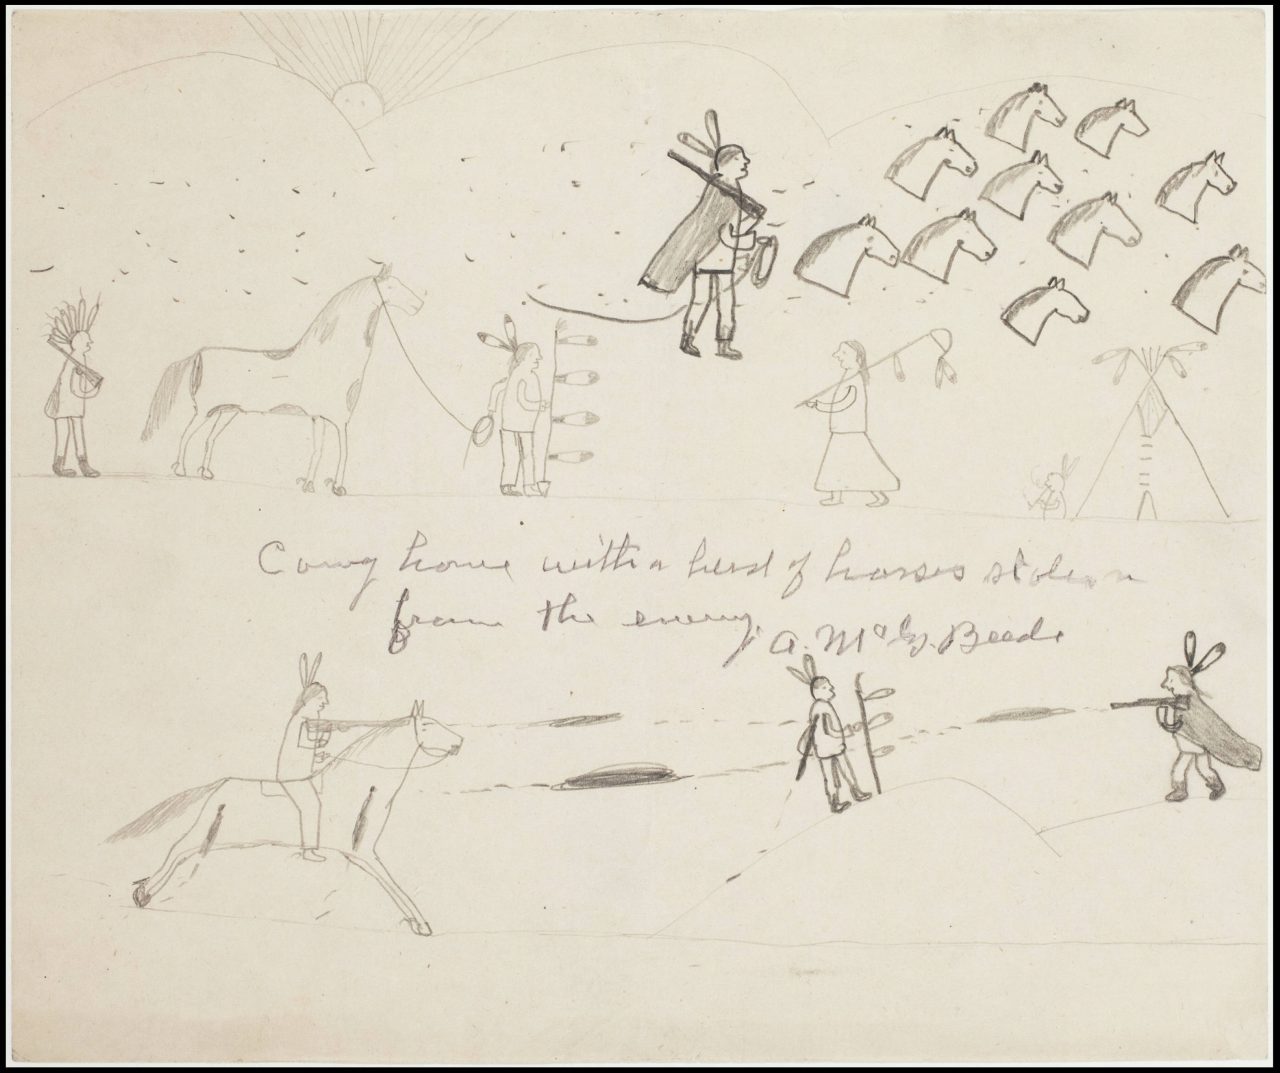 Comg home with a herd of horses stolen
from the enemy.
A. McG. Beede